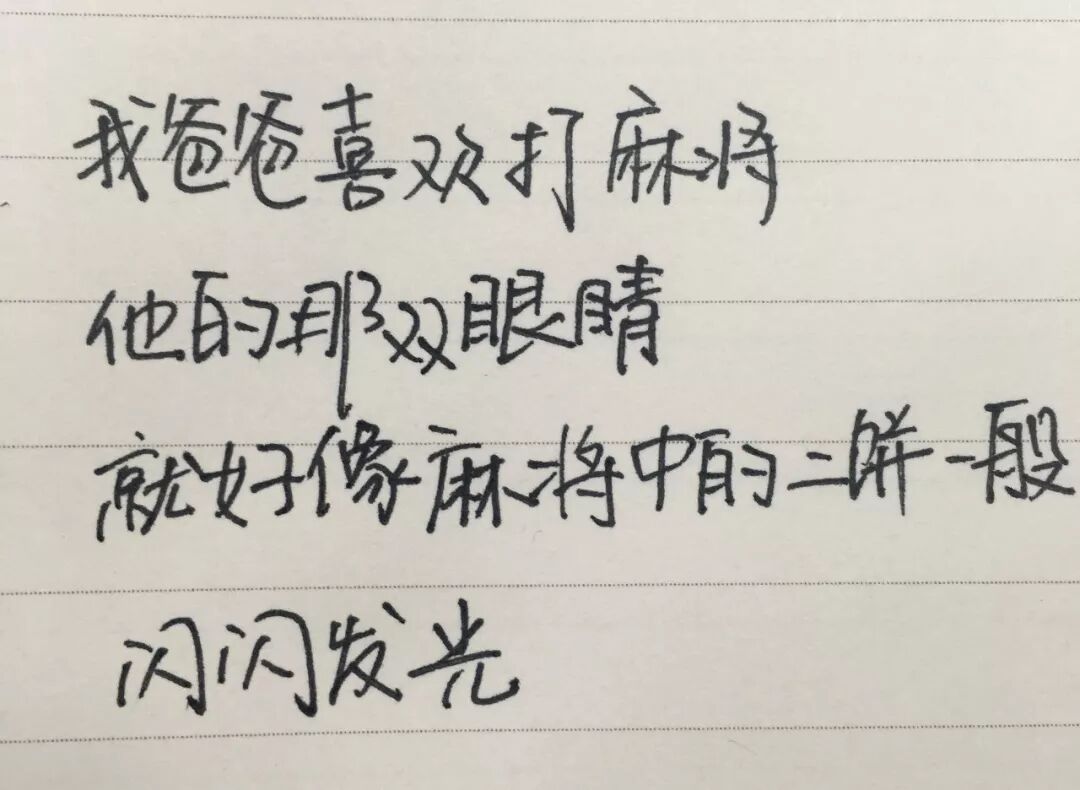 我爸爸喜欢打麻将
他的那双眼睛
就好像麻将中的二饼一般
闪闪发光